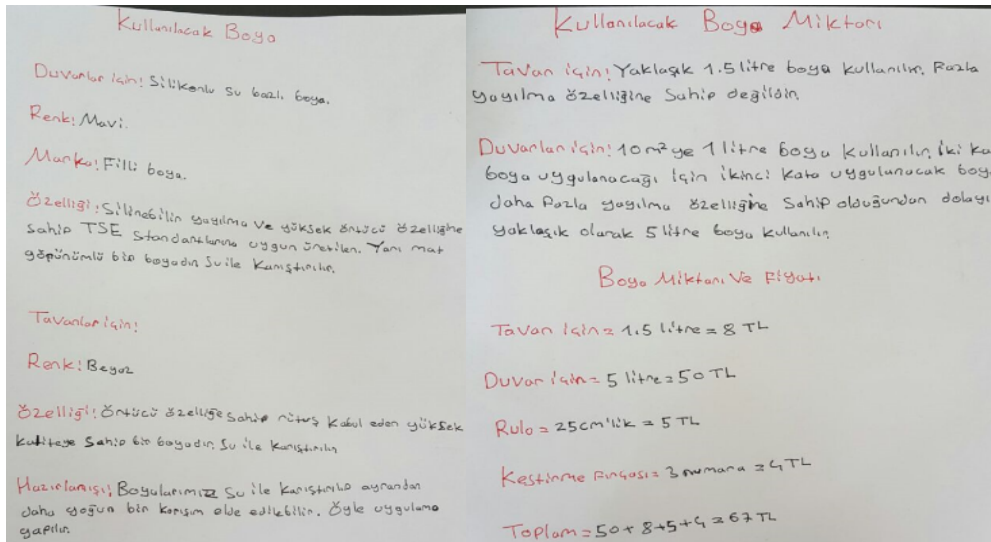 Kullanılacak Boya
Duvarlar için! Silikonlu su bazlı boya.
Renk! Mavi.
Marka! Filli boya.
Özelliği! Silinebilir yayılma ve yüksek örtücü özelliğine
sahip TSE standartlarına uygun üretilen. Yarı mat
görünümlü bir boyadır su ile karıştırılır.
Tavanlar için!
Renk! Beyaz
Özelliği! Örtücü özelliğe sahip rütuş kabul eden yüksek
kaliteye sahip bir boyadır. Su ile karıştırılır
Hazırlanışı! Boyalarımız su ile karıştırılıp ayrandan
daha yoğun bir karışım elde edilebilir. Öyle uygulama
yapılır.
Kullanılacak Boya Miktarı
Tavan için! Yaklaşık 1.5 litre boya kullanılır. Fazla
yayılma özelliğine sahip değildir.
Duvarlar için! 10 m² ye 1 litre boya kullanılır. İki ka
boya uygulanacağı için ikinci kata uygulanacak boy
daha fazla yayılma özelliğine sahip olduğundan dolayı
yaklaşık olarak 5 litre boya kullanılır.
Boya Miktarı Ve Fiyatı
Tavan için = 1.5 litre = 8 TL
Duvar için = 5 litre = 50 TL
Rulo = 25cm'lik = 5 TL
Kestirme Fırçası = 3 numara = 4 TL
Toplam = 50 + 8 + 5 + 4 = 67 TL